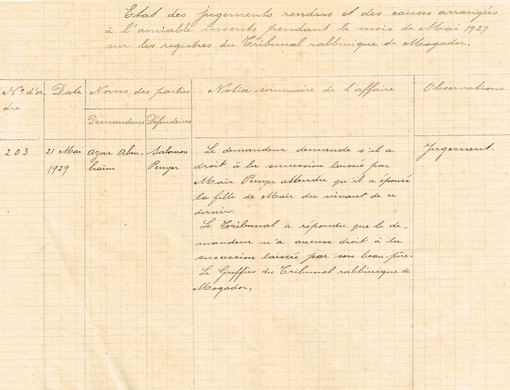 Etat des jugements rendus et des causes arrangées
à l'amiable inscrits pendant le mois de Mai 1929
sur les registres du Tribunal rabbinique de Mogador.
N° d'or
dre
Date
Noms des parties
Notice sommaire de l'affaire
Observations
Demandeurs
Défendeurs
203
21 Mai
1929
Azar Abou-
haim
Salomon
Penyer
Le demandeur demande s'il a
droit à la succession laissée par
Maïr Penyer attendu qu'il a épousé
la fille de Maïr du vivant de ce
dernier.
Le Tribunal a répondu que le de-
mandeur n'a aucun droit à la
succession laissée par son beau-père.
Le Greffier du Tribunal rabbinique de
Mogador.
Jugement.